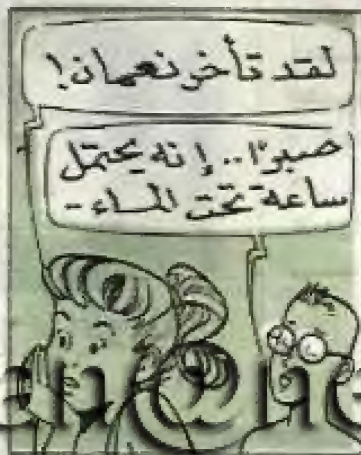 لقد تأخر نعمان!
صبرًا.. إنه يحتمل
ساعة تحت الماء -